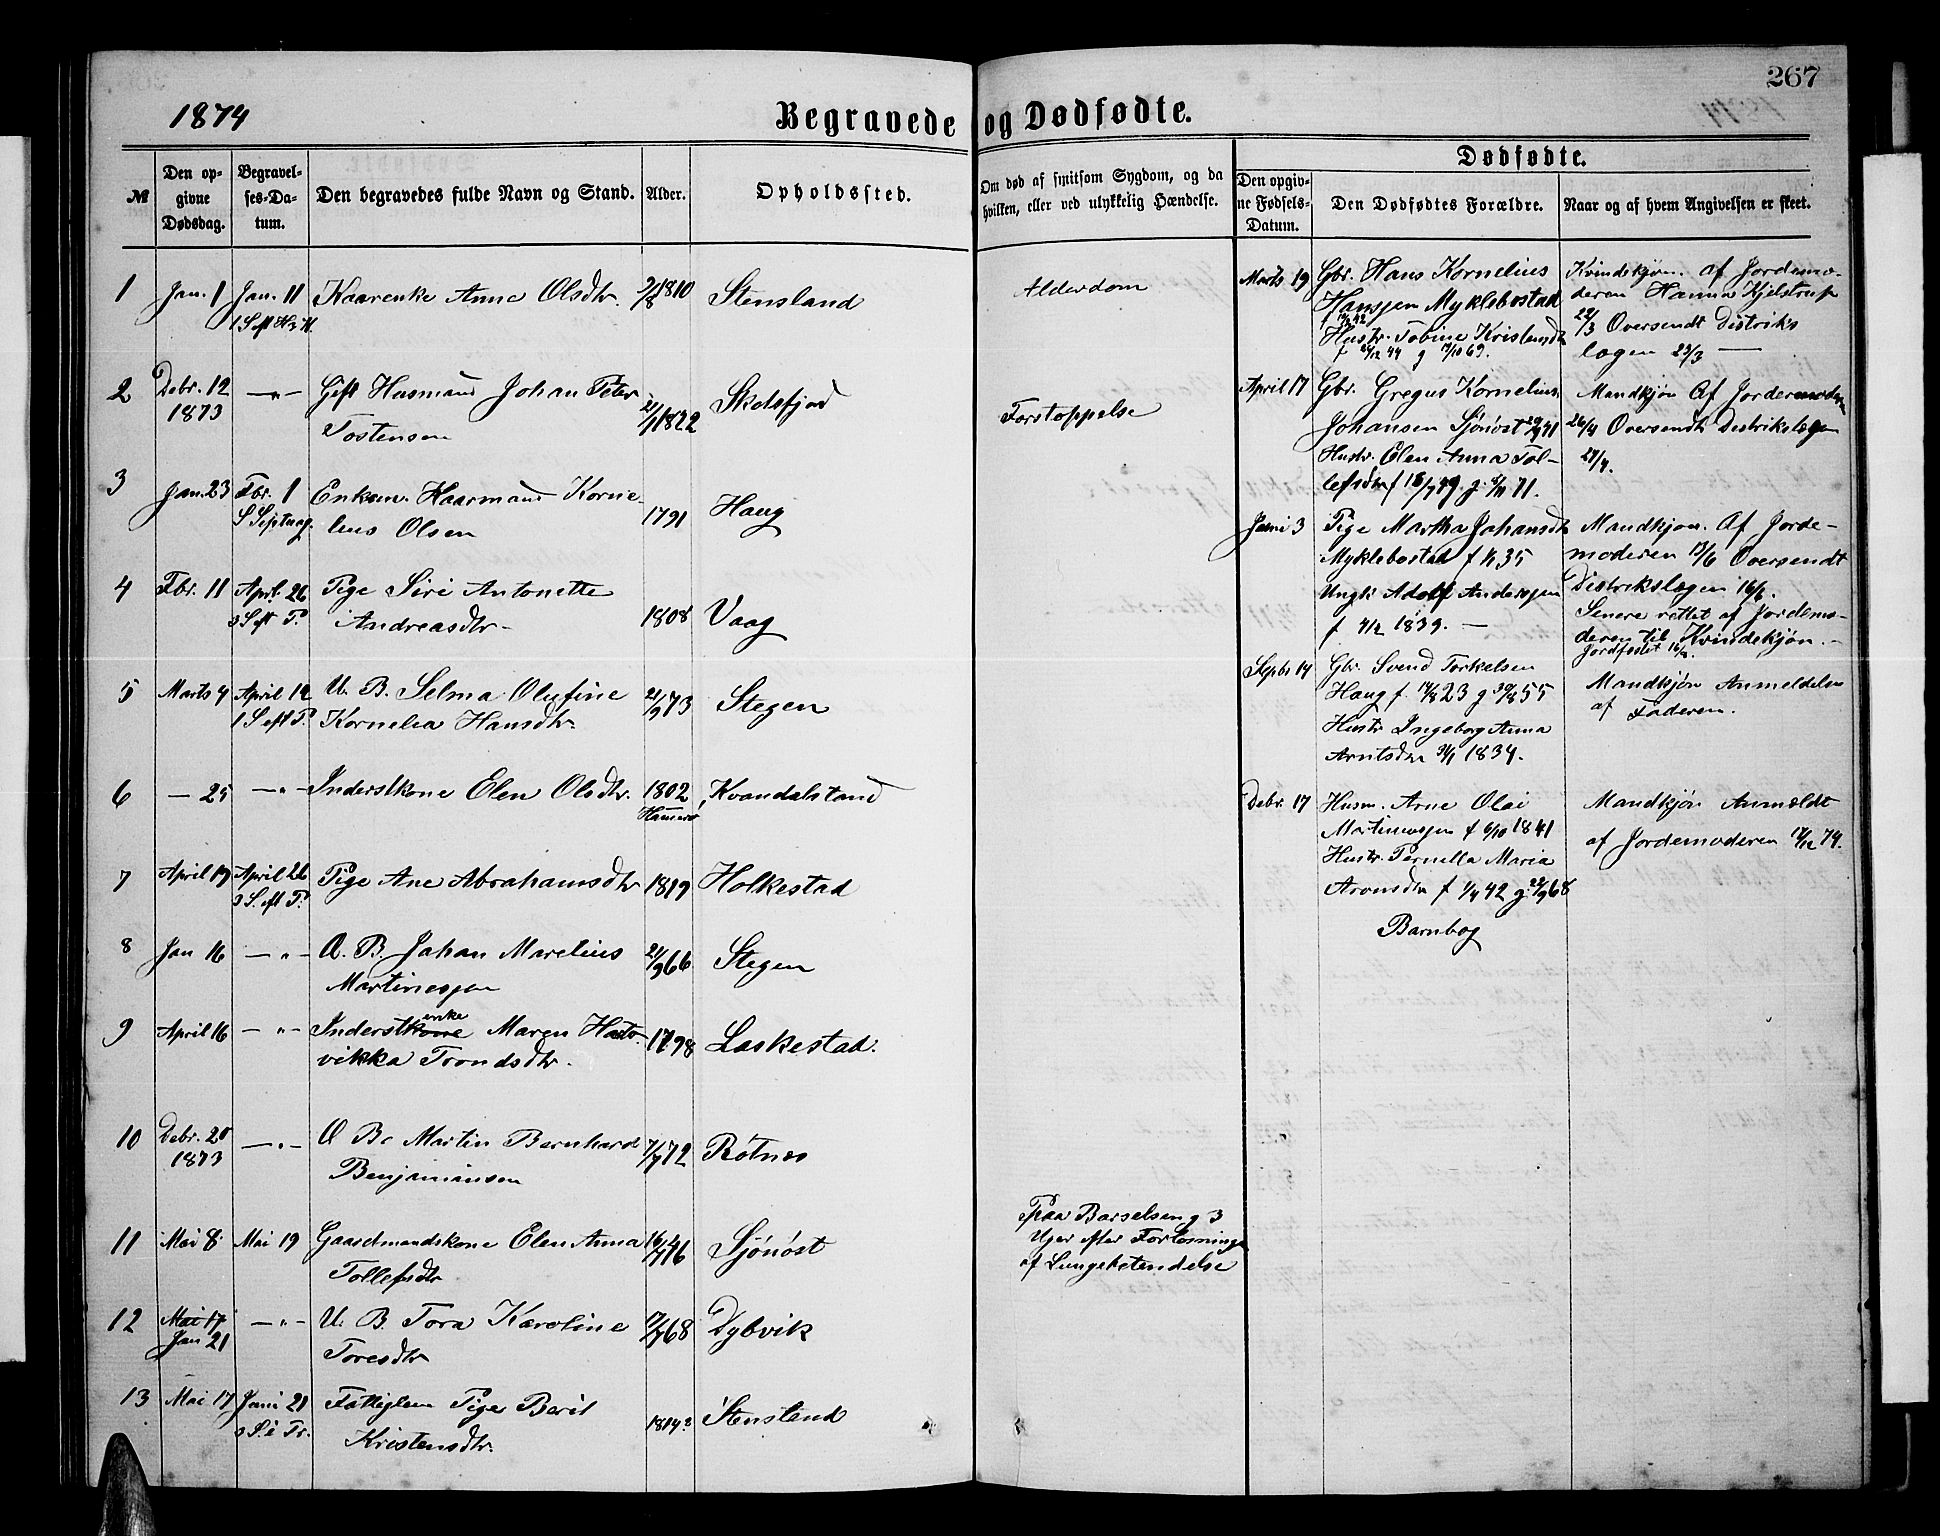 267
1874
Begravede og Dødfødte.
№
Den opgivne Dødsdag.
Begravelses-Datum.
Den begravedes fulde Navn og Stand.
Alder.
Opholdssted.
Om død af smitsom Sygdom, og da
hvilken, eller ved ulykkelig Hændelse.
Dødfødte.
Den opgivne Fødsels-Datum.
Den Dødfødtes Forældre.
Naar og af hvem Angivelsen er skeet.
1 Jan. 1 Jan. 11 Kaarenke Anne Olsdtr. 2/8 1810 Stensland Alderdom
1 S eft H3K
2 Debr. 12 —"— Gift Husmand Johan Peter 21/1 1822 Skotsfjord Forstoppelse
1873 Tostensen
3 Jan. 23 Fbr. 1 Enkem. Haarmand Korne- 1791 Haug
S Septuag. lius Olsen
4 Fbr. 11 Apr. 26 Pige Siri Antonette 1808 Vaag
3 S eft P. Andreasdtr
5 Marts 4 April 12 U. B. Selma Olufine 21/9 73 Stegen
1 S eft P. Kornelia Hansdtr.
6 — 25 —"— Inderstkone Elen Olsdtr. 1802 Kvandalstand
Hamerø
7 April 19 April 26 Pige Ane Abrahamsdtr 1819 Holkestad
3 S. eft P.
8 Jan 16 —"— U. B. Johan Marelius 21/9 66 Stegen
Martinesen
9 April 16 —"— Inderstkone enke Maren Hart- 1798 Laskestad.
vikka Trondsdtr.
10 Debr. 20 —"— U B. Martin Bernhard 7/7 72 Røtnes
1873 Benjaminsen
11 Mai 8 Mai 19 Gaardmandskone Elen Anna 16/7 46 Sjønøst
Tollefsdtr
Paa Barselseng 3
Uger efter Forløsning
af Lungebetendelse
12 Mai 17 —"— U. B. Tora Karoline 9/7 68 Dybvik
Jan 21 Toresdtr
13 Mai 17 Juni 21 Fattiglem Pige Berit 1814? Stensland
3 S. e Tr. Kristensdtr.
Marts 19 Gbr. Hans Kornelius
Hansen Myklebostad
Hustr. Tobine Kristensdtr
f 24/12 44 g 17/10 69.
Kvindekjøn. af Jordemo-
deren Hanna Kjelstrup
22/3 Oversendt Distriks
lægen 23/3 —
April 17 Gbr. Gregus Kornelius
Johansen Sjønøst 29/9 41
Hustr. Elen Anna Tol-
lefsdtr f 16/7 49 g. 8/11 71.
Mandkjøn Af Jordemoderen
26/4 Oversendt Distrikslægen
27/4.
Juni 3 Pige Martha Johansdtr
Myklebostad f 35
Ungk. Adolf Andersen
f 4/12 1839. —
Mandkjøn. Af Jorde-
moderen 13/6 Oversendt
Distrikslægen 16/6.
Senere rettet af Jordemo-
deren til Kvindekjøn. —
Jordfæstet 16/8.
Septbr 14 Gbr. Svend Torkelsen
Haug f 14/8 23 g 30/8 55
Hustr Ingeborg Anna
Arntsdtr 31/1 1834.
Mandkjøn Anmeldelse
af Faderen.
Debr. 17 Husm. Arne Olai
Martinussen f 6/10 1841
Hustr. Pernella Maria
Aronsdtr f 1/4 42 g. 22/9 68
Barnbog
Mandkjøn Anmeldt
af Jordemoderen 17/12 74.